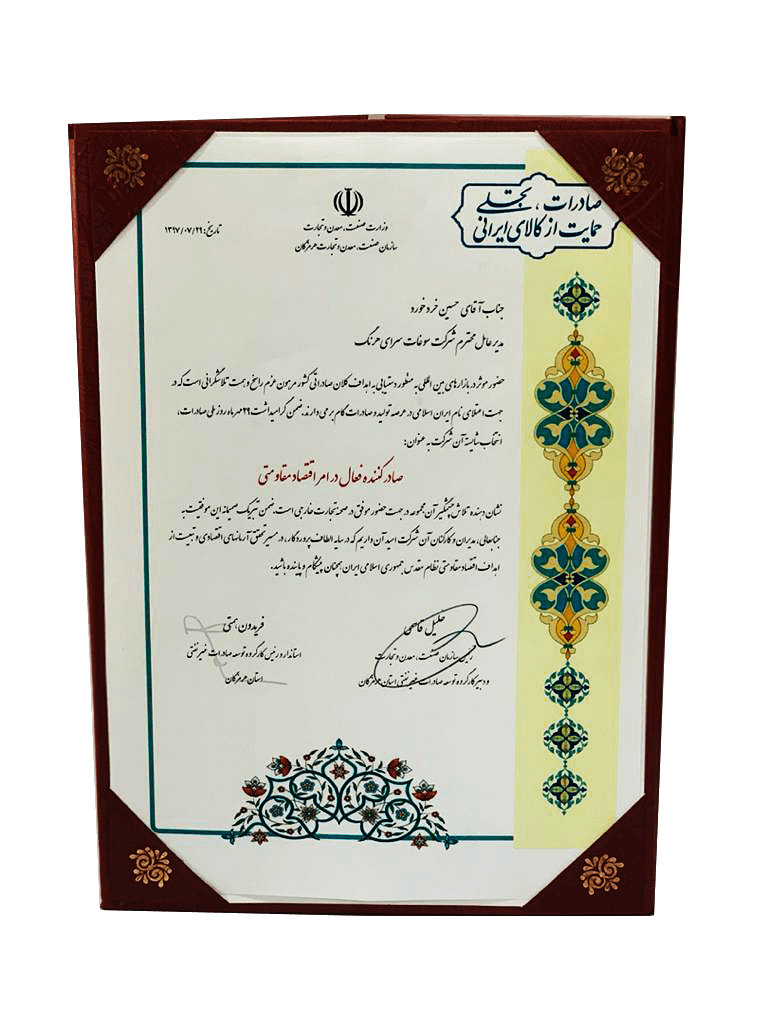 صادرات، تجلی
حمایت از کالای ایرانی
وزارت صنعت، معدن و تجارت
سازمان صنعت، معدن و تجارت هرمزگان
تاریخ: ۱۳۹۷/۰۷/۲۹
جناب آقای حسین خرد خورد
مدیر عامل محترم شرکت سوغات سرای هرنگ
حضور موثر در بازارهای بین المللی به منظور دستیابی به اهداف کلان صادراتی کشور مرهون عزم راسخ و همت تلاشگرانی است که در
جهت اعتلای نام ایران اسلامی در عرصه تولید و صادرات گام بر می دارند، ضمن گرامیداشت ۲۹ مهرماه روز ملی صادرات،
انتخاب شایسته آن شرکت به عنوان:
صادر کننده فعال در امر اقتصاد مقاومتی
نشان دهنده تلاش چشمگیر آن مجموعه در جهت حضور موفق در صحنه تجارت خارجی است. ضمن تبریک صمیمانه این موفقیت به
جنابعالی، مدیران و کارکنان آن شرکت امید آن داریم که در سایه الطاف پروردگار، در مسیر تحقق آرمانهای اقتصادی و تبعیت از
اهداف اقتصاد مقاومتی نظام مقدس جمهوری اسلامی ایران همچنان پیشگام و پاینده باشید.
خلیل قاسمی
رئیس سازمان صنعت، معدن و تجارت
و دبیر کارگروه توسعه صادرات غیر نفتی استان هرمزگان
فریدون همتی
استاندار و رئیس کارگروه توسعه صادرات غیر نفتی
استان هرمزگان